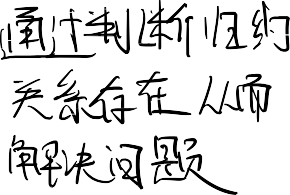 通过判断归约
关系存在从而
解决问题